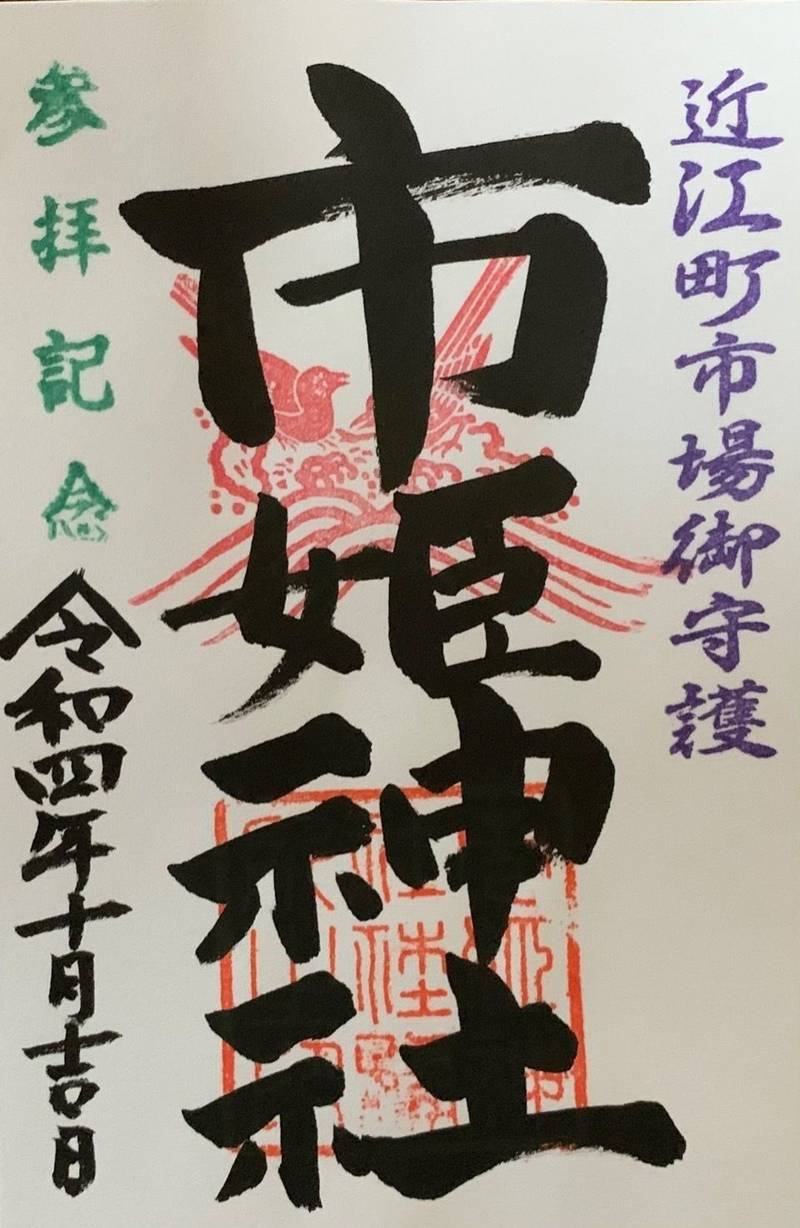 近江町市場御守護
市姫神社
参拝記念
令和四年十月吉日